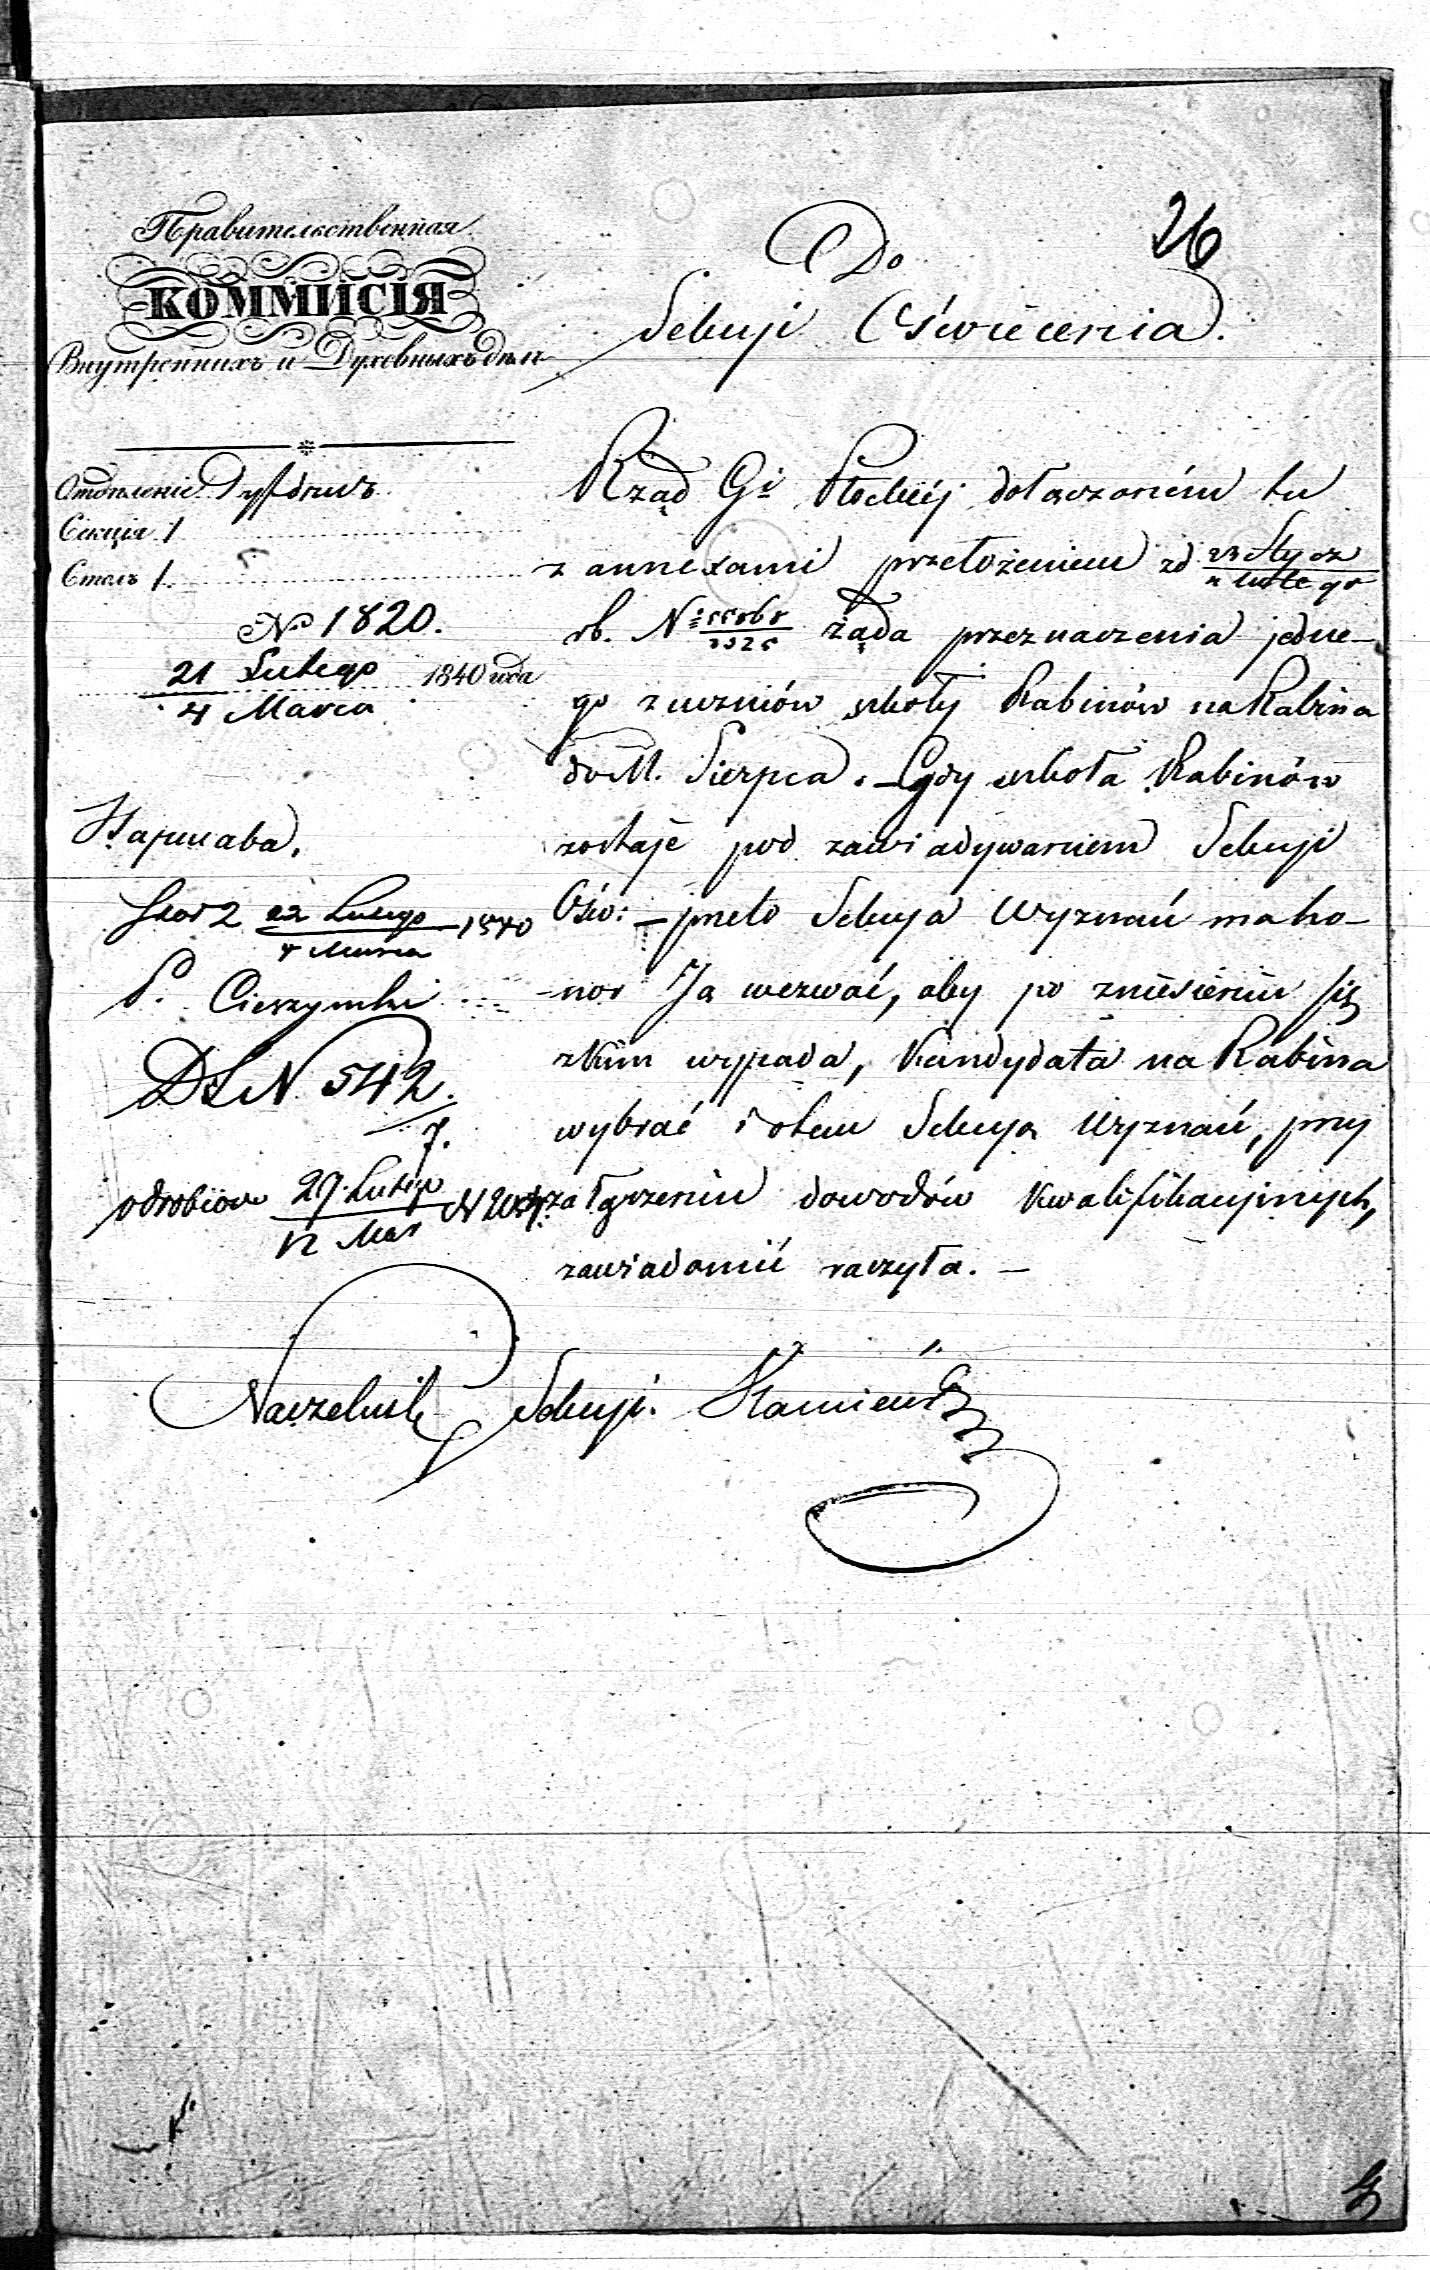 26
Правительственная
КОММИСІЯ
Внутреннихъ и Духовныхъ дѣлъ
Отдѣленіе
Секція 1
Столъ 1
№ 1820.
21 Lutego / 4 Marca 1840 года
Варшава.
22 Lutego / 4 Marca 1840
P. Cieszymski
N 542.
7.
odrobiono 29 Lutego / 12 Mar N
Do
Sekcyi Oświecenia.
Rząd Gi Płockiéj dołączoném tu
z annexami przełożeniem zd 23 Stycz / Lutego
rb. N żąda przeznaczenia jedne-
go z uczniów szkoły Rabinów na Rabina
do M. Sierpca. – Gdy szkoła Rabinów
zostaje pod zawiadywaniem Sekcyi
Ośw: – przeto Sekcya Wyznań ma ho-
nor Ją wezwać, aby po zniesieniu się
z kim wypada, Kandydata na Rabina
wybrać i o tem Sekcyą Wyznań, przy
załączeniu dowodów kwalifikacyjnych,
zawiadomić raczyła. –
Naczelnik Sekcyi.